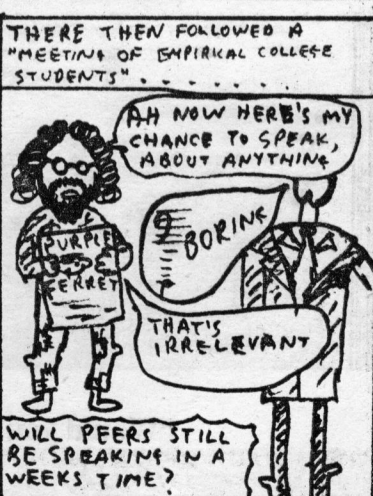 THERE THEN FOLLOWED A
"MEETING OF EMPIRIKAL COLLEGE
STUDENTS" . . . . . . .
AH NOW HERE'S MY
CHANCE TO SPEAK,
ABOUT ANYTHING
BORING
PURPLE
FERRET
THAT'S
IRRELEVANT
WILL PEERS STILL
BE SPEAKING IN A
WEEKS TIME?